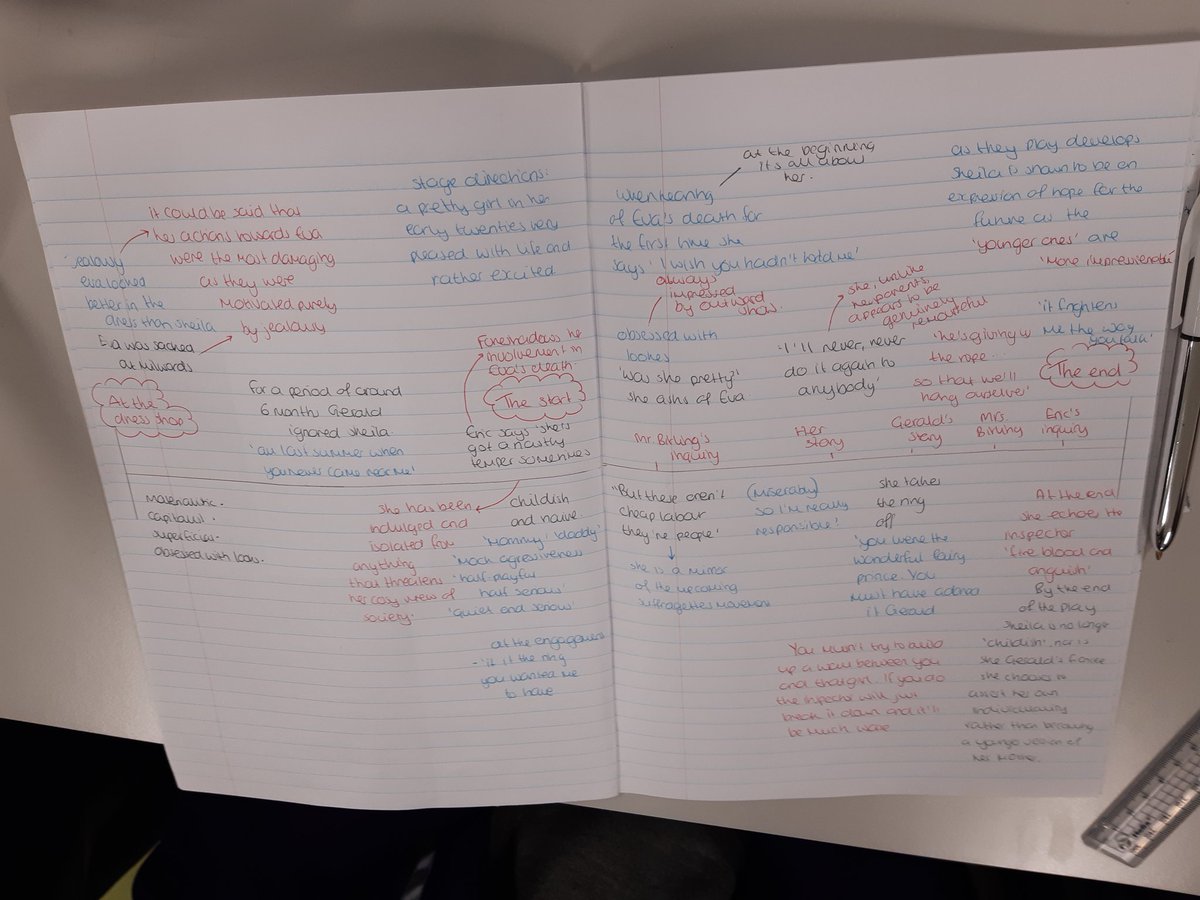 it could be said that
her actions towards Eva
were the most damaging
as they were
motivated purely
by jealousy
'jealousy
eva looked
better in the
dress than sheila
Eva was sacked
at milwards
At the
dress shop
materialistic.
capitalist.
superficial.
obsessed with looks.
stage directions:
a pretty girl in her
early twenties very
pleased with life and
rather excited
for a period of around
6 month Gerald
ignored sheila.
'all last summer when
you never came near me'
Foreshadows he
involvement in
Eva's death.
The start
Eric says 'she's
got a nasty
temper sometimes
she has been
indulged and
isolated from
anything
that threatens
her cosy view of
society.
childish
and naive.
'Mommy' 'daddy'
'Mock agressiveness
'half playful
half serious'
'Quiet and serious'
at the engagement
- 'it it the ring
you wanted me
to have
at the beginning
it's all about
her.
when hearing
of Eva's death for
the first time she
says 'I wish you hadn't told me'
always
impressed
by outward
show.
obsessed with
looks
'was she pretty?'
she asks of Eva
she, unlike
her parents,
appears to be
genuinely
remorseful
'I'll never, never
do it again to
anybody'
as they play develops
sheila is shown to be an
expression of hope for the
future as the
'younger ones' are
'more impressionable'
'he's giving us
the rope...
so that we'll
hang ourselves'
'it frightens
me the way
you talk'
The end
Mr. Birling's
inquiry
Her
story
Gerald's
story
Mrs.
Birling
Eric's
inquiry
"But these aren't
cheap labour
they're people'
she is a mirror
of the upcoming
suffragettes movement
(miserably)
so I'm really
responsible?
she takes
the ring
off
'you were the
wonderful fairy
prince. You
must have adored
it Gerald
You mustn't try to build
up a wall between you
and that girl. If you do
the inspector will just
break it down and it'll
be much worse
At the end
she echoes the
inspector
'fire blood and
anguish'
By the end
of the play
sheila is no longer
'childish', nor is
she Gerald's fiance
she chooses to
assert her own
individuality
rather than becoming
a younger version of
her mother.